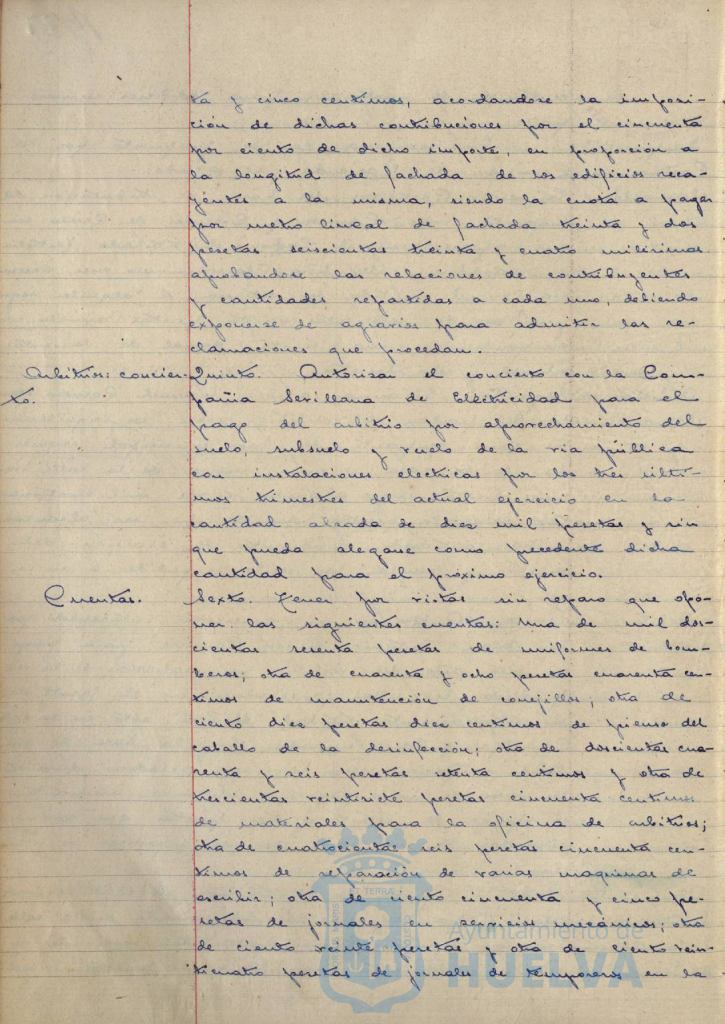 ta y cinco centimos, acordandose la imposi-
ción de dichas contribuciones por el cincuenta
por ciento de dicho importe, en proporción a
la longitud de fachada de los edificios reca-
yentes a la misma, siendo la cuota a pagar
por metro lineal de fachada treinta y dos
pesetas seiscientas treinta y cuatro milésimas
aprobandose las relaciones de contribuyentes
y cantidades repartidas a cada uno, debiendo
exponerse de agravios para admitir las re-
clamaciones que procedan.
Arbitrios: concier-
to.
Quinto. Autorizar el concierto con la Com-
pañia Sevillana de Electricidad para el
pago del arbitrio por aprovechamiento del
suelo, subsuelo y vuelo de la via pública
con instalaciones electricas por los tres últi-
mos trimestres del actual ejercicio en la
cantidad alzada de diez mil pesetas y sin
que pueda alegarse como precedente dicha
cantidad para el próximo ejercicio.
Cuentas.
Sexto. Tener por vistas sin reparo que opo-
ner las siguientes cuentas: una de mil dos-
cientas sesenta pesetas de uniformes de bom-
beros; otra de cuarenta y ocho pesetas cuarenta cen-
timos de manutención de conejillos; otra de
ciento diez pesetas diez centimos de pienso del
caballo de la desinfección; otra de doscientas cua-
renta y seis pesetas setenta centimos y otra de
trescientas veintisiete pesetas cincuenta centimos
de materiales para la oficina de arbitrios;
otra de cuatrocientas seis pesetas cincuenta cen-
timos de reparación de varias maquinas de
escribir; otra de ciento cincuenta y cinco pe-
setas de jornales en servicios mecánicos; otra
de ciento veinte pesetas y otra de ciento vein-
ticuatro pesetas de jornales de temporeros en la
Ayuntamiento de
HUELVA